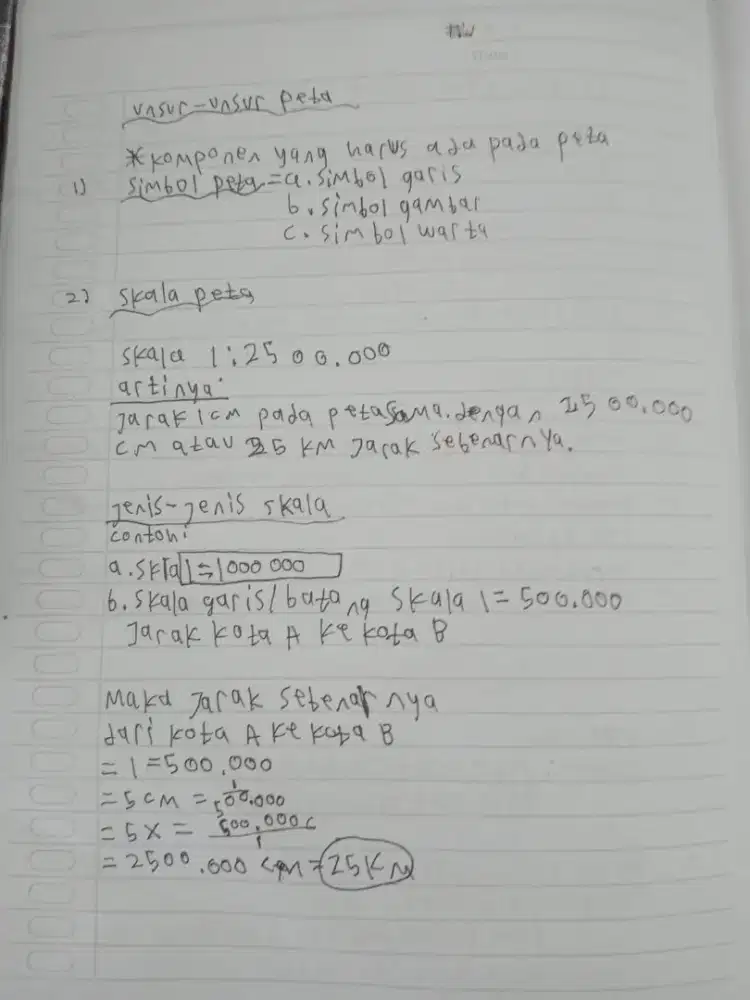 unsur-unsur peta
*komponen yang harus ada pada peta
1) simbol peta = a. simbol garis
b. simbol gambar
c. simbol warta
2) skala peta
skala 1:2500.000
artinya:
Jarak 1 cm pada peta sama dengan 2500.000
cm atau 25 KM Jarak sebenarnya.
jenis-jenis skala
contoh:
a. skla 1=1000 000
b. skala garis/batang skala 1=500.000
Jarak kota A ke kota B
Maka Jarak sebenarnya
dari kota A ke kota B
= 1=500.000
= 5 cm = 1/500.000
= 5 x = 500.000 c/1
= 2500.000 cm = 25 KM